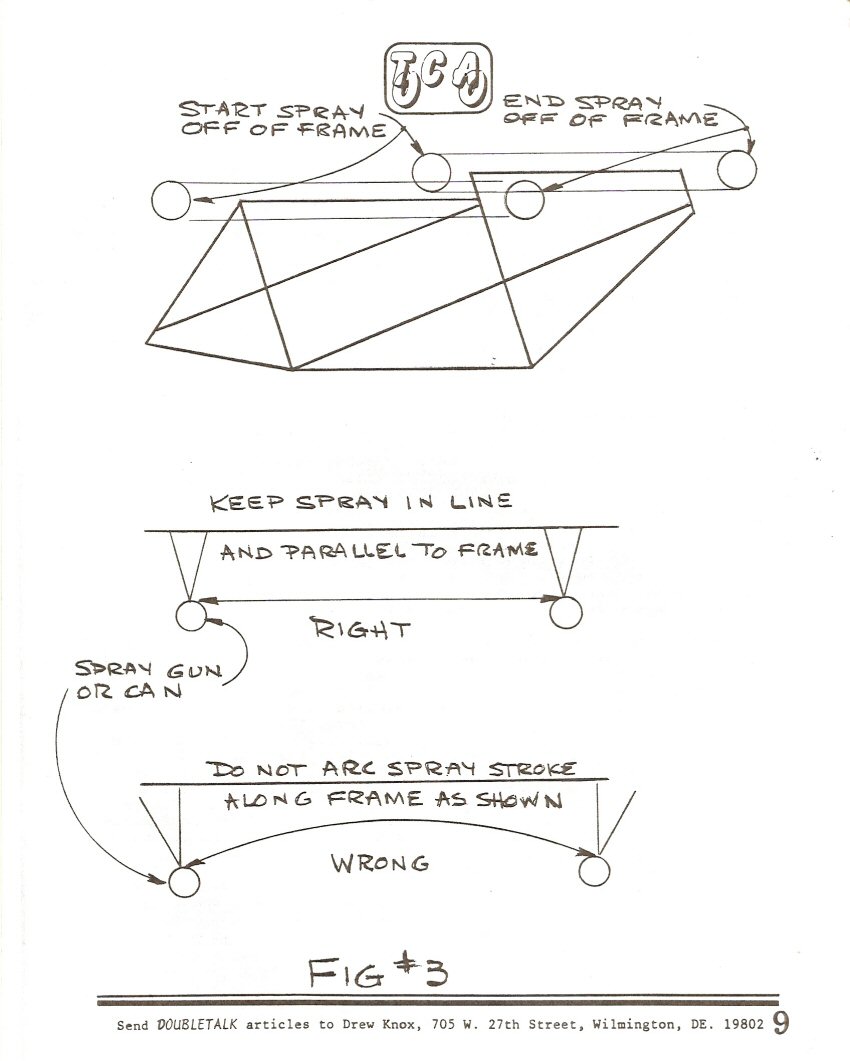 TCA
START SPRAY
OFF OF FRAME
END SPRAY
OFF OF FRAME
KEEP SPRAY IN LINE
AND PARALLEL TO FRAME
RIGHT
SPRAY GUN
OR CAN
DO NOT ARC SPRAY STROKE
ALONG FRAME AS SHOWN
WRONG
FIG #3
Send DOUBLETALK articles to Drew Knox, 705 W. 27th Street, Wilmington, DE. 19802 9